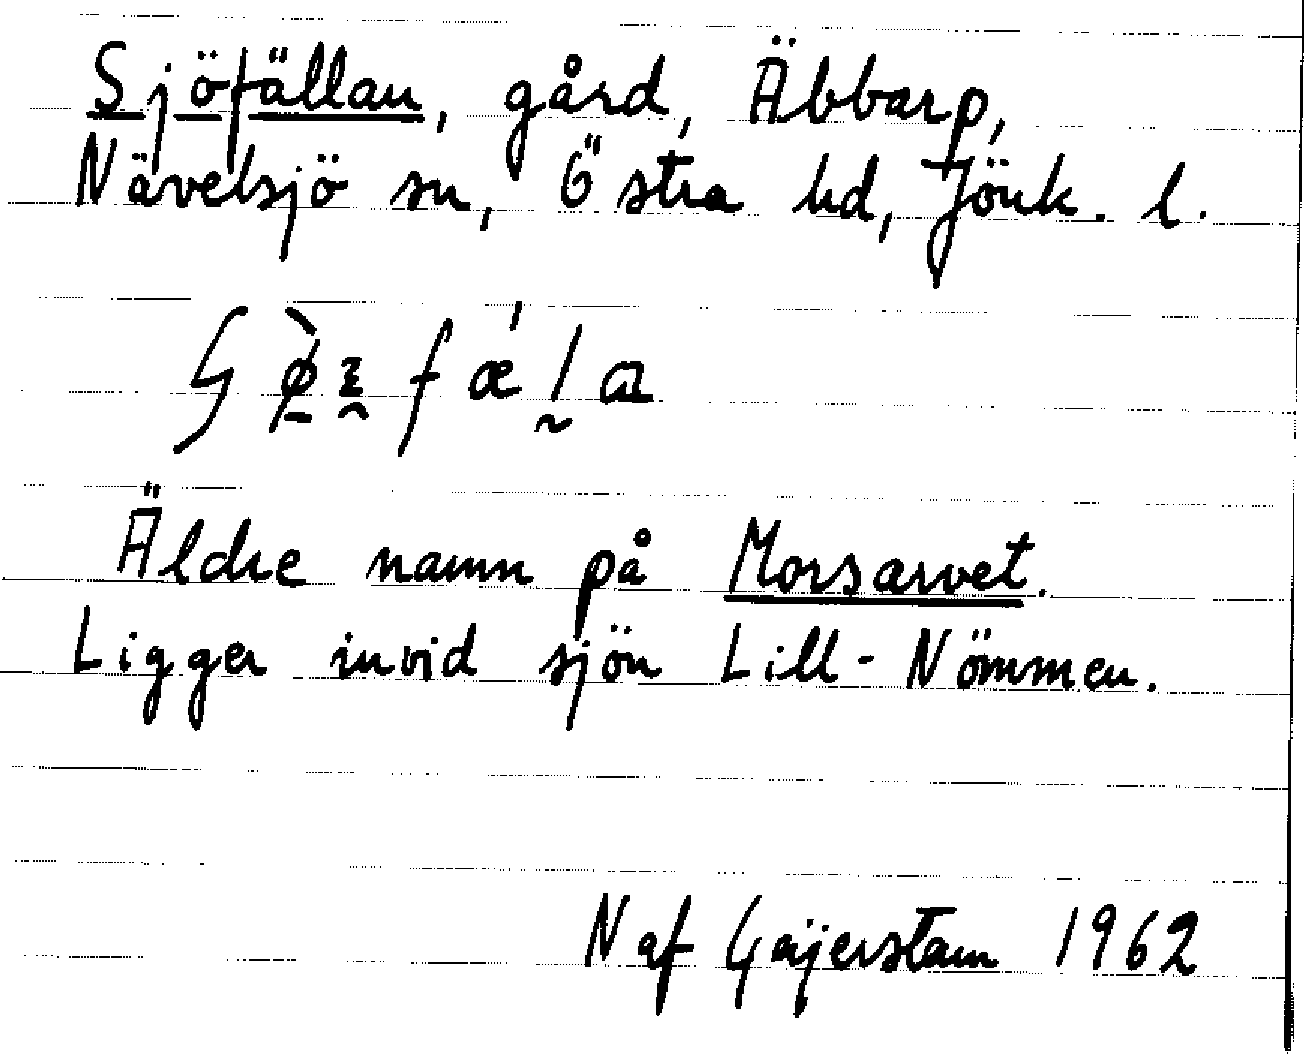 Sjöfällan, gård, Äbbarp,
Nävelsjö sn, Östra hd, Jönk. l.
Äldre namn på Morsarvet.
Ligger invid sjön Lill-Nömmen.
N af Geijerstam 1962